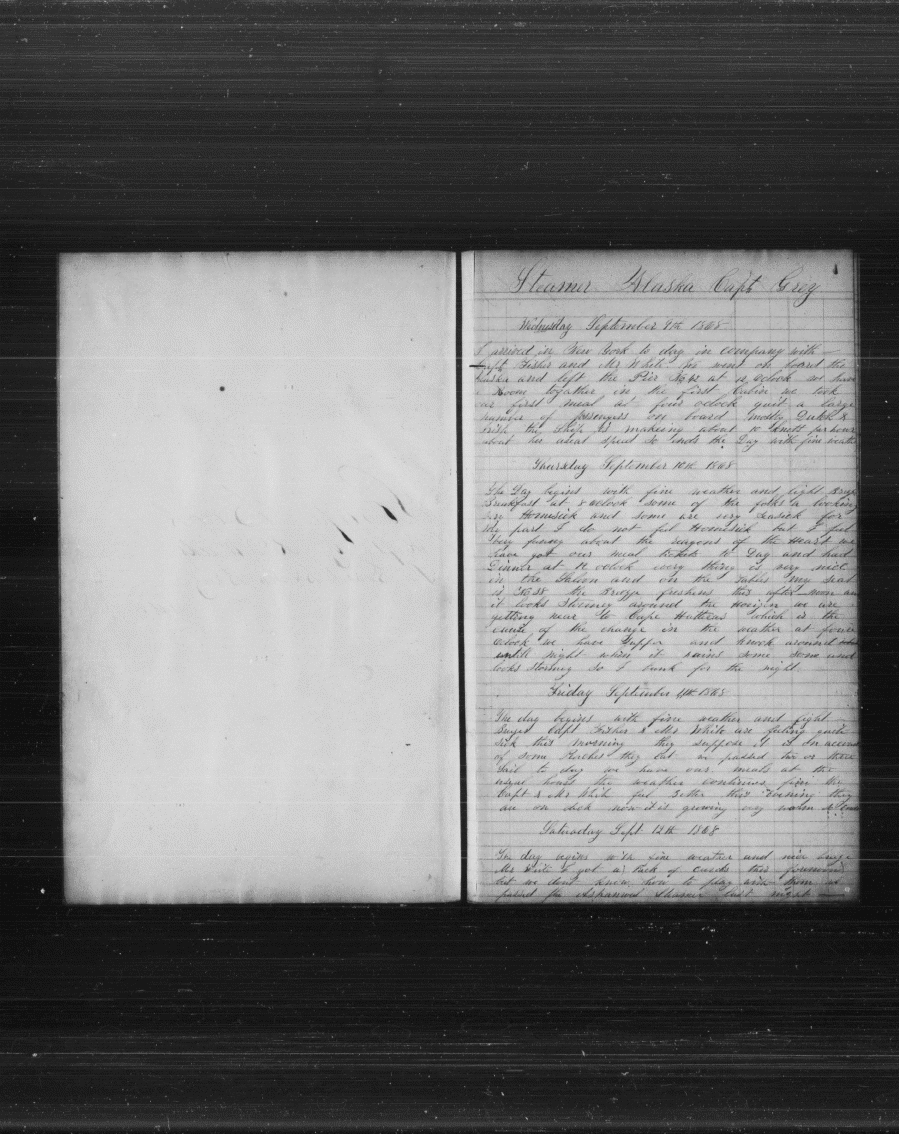 1
Steamer Alaska Capt Grey
Wednesday September 9th 1868
I arrived in New York to day in company with
Capt Fisher and Mr White. We went on board the
Alaska and left the Pier No 42 at 12 oclock we have
a Room together in the First Cabin we took
our first meal at four oclock quit a large
number of passengers on board mostly Dutch &
Irish the ship is makeing about 10 knotts per hour
about her usual speed so ends the Day with fine weath
Thursday September 10th 1868
The Day begins with fine weather and light Breze
Breakfast at 8 oclock some of the folks a looking
Homesick and some are very seasick for
My part I do not feel Homesick but I feel
very funny about the reagons of the Heart we
have got our meal tickets to Day and had
Dinner at 12 oclock every thing is very nice
in the Saloon and on the tables my seat
is No 58 the Breeze freshens this after noon an
it looks Stormy around the Horizon we are
getting near to Cape Hatteras which is the
cause of the change in the weather at four
oclock we have Supper and knock around
until night when it rains some and
looks stormey so I bunk for the night
Friday September 11th 1868
The day begins with fine weather and light
Capt Fisher & Mr White are feeling quite
sick this morning they suppose it is on account
of some they Eat we passed two or three
Sail to day we have our meals at the
usual hours the weather continues fine the
Capt & Mr White feel better this Evening they
are on deck now it is growing very warm
Saturday Sept 12th 1868
The day begins with fine weather and nice
Mr White & got a Pack of Cards this
but we dont know how to play with them we
passed the Steamer last night